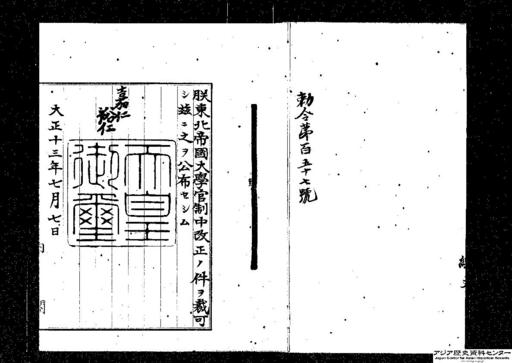 勅令第百五十七號
朕東北帝國大學官制中改正ノ件ヲ裁可
シ玆ニ之ヲ公布セシム
嘉仁
裕仁
天皇
御璽
大正十三年七月七日
内閣
アジア歴史資料センター
Japan Center for Asian Historical Records